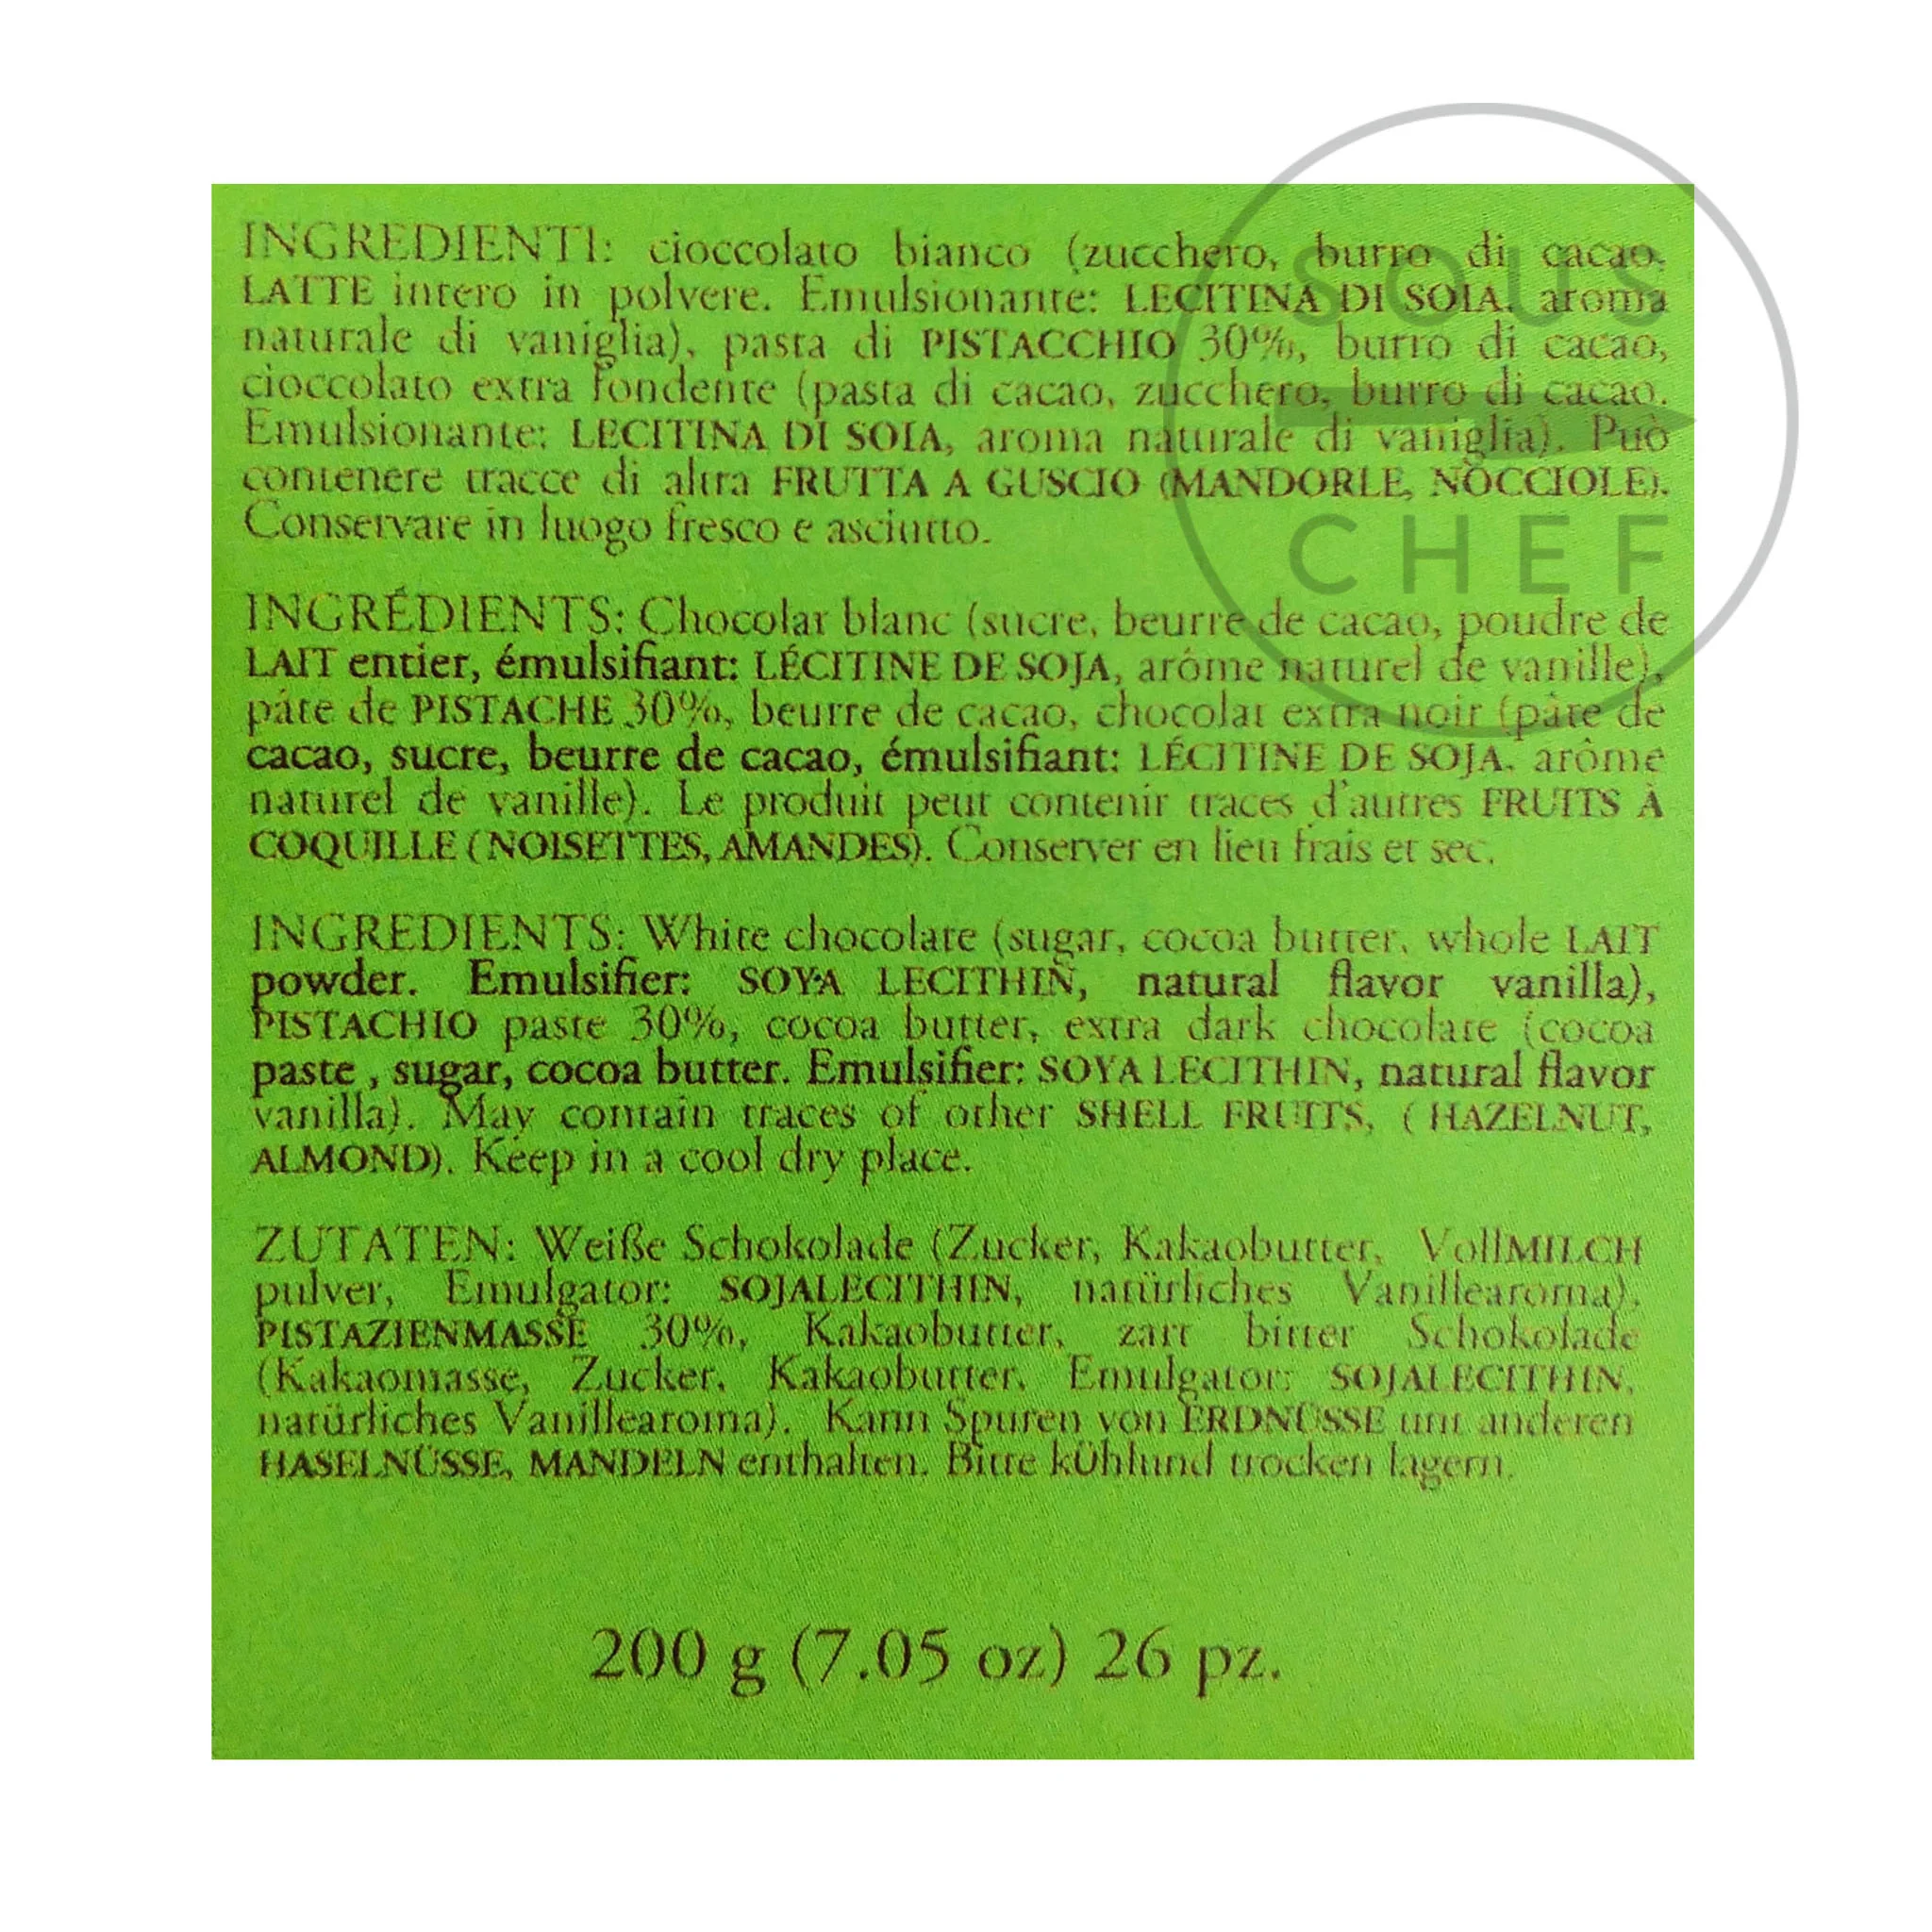 INGREDIENTI: cioccolato bianco (zucchero, burro di cacao,
LATTE intero in polvere. Emulsionante: LECITINA DI SOIA, aroma
naturale di vaniglia), pasta di PISTACCHIO 30%, burro di cacao,
cioccolato extra fondente (pasta di cacao, zucchero, burro di cacao.
Emulsionante: LECITINA DI SOIA, aroma naturale di vaniglia). Può
contenere tracce di altra FRUTTA A GUSCIO (MANDORLE, NOCCIOLE).
Conservare in luogo fresco e asciutto.
INGRÉDIENTS: Chocolat blanc (sucre, beurre de cacao, poudre de
LAIT entier, émulsifiant: LÉCITINE DE SOJA, arôme naturel de vanille),
pâte de PISTACHE 30%, beurre de cacao, chocolat extra noir (pâte de
cacao, sucre, beurre de cacao, émulsifiant: LÉCITINE DE SOJA, arôme
naturel de vanille). Le produit peut contenir traces d'autres FRUITS À
COQUILLE (NOISETTES, AMANDES). Conserver en lieu frais et sec.
INGREDIENTS: White chocolate (sugar, cocoa butter, whole LAIT
powder. Emulsifier: SOYA LECITHIN, natural flavor vanilla),
PISTACHIO paste 30%, cocoa butter, extra dark chocolate (cocoa
paste , sugar, cocoa butter. Emulsifier: SOYA LECITHIN, natural flavor
vanilla). May contain traces of other SHELL FRUITS, ( HAZELNUT,
ALMOND). Keep in a cool dry place.
ZUTATEN: Weiße Schokolade (Zucker, Kakaobutter, VollMILCH
pulver, Emulgator: SOJALECITHIN, natürliches Vanillearoma),
PISTAZIENMASSE 30%, Kakaobutter, zart bitter Schokolade
(Kakaomasse, Zucker, Kakaobutter, Emulgator: SOJALECITHIN,
natürliches Vanillearoma). Kann Spuren von ERDNÜSSE unt anderen
HASELNÜSSE, MANDELN enthalten. Bitte kÜhlund trocken lagern.
200 g (7.05 oz) 26 pz.
SOUS
CHEF